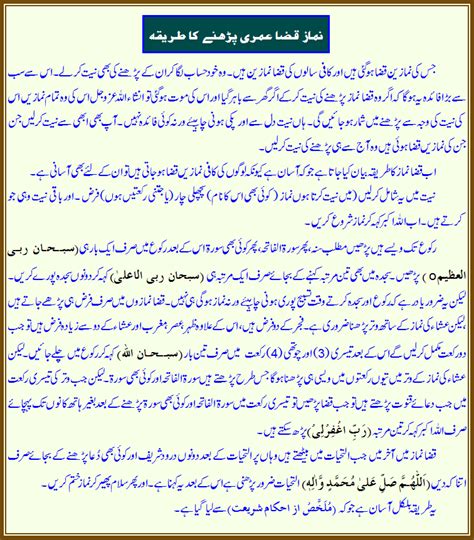 نماز قضا عمری پڑھنے کا طریقہ
جس کی نمازیں قضا ہوگئی ہیں اور کافی سالوں کی قضا نمازیں ہیں۔ وہ خود حساب لگا کر ان کے پڑھنے کی بھی نیت کرلے۔ اس سے سب
سے بڑا فائدہ یہ ہوگا کہ اگر وہ قضا نماز پڑھنے کی نیت کر کے اگر گھر سے باہر گیا اور اس کی موت ہوگئی تو انشاء اللہ عزوجل اس کی وہ تمام نمازیں اس
کی نیت کی وجہ سے پڑھنے میں شمار ہوجائیں گی۔ ہاں نیت دل سے اور پکی ہونی چاہیئے ورنہ کوئی فائدہ نہیں۔ آپ بھی ابھی سے نیت کرلیں جن
جن کی نمازیں قضا ہوئی ہیں وہ آج سے ہی پڑھنے کی نیت کرلیں۔
اب قضا نماز کا طریقہ بیان کیا جاتا ہے جو کہ آسان ہے کیونکہ لوگوں کی کافی نمازیں قضا ہوجاتی ہیں تو ان کے لئے بھی آسانی ہے۔
نیت میں یہ شامل کرلیں (میں نیت کرتا ہوں نماز (کوئی بھی اس کا نام) پچھلی چار (یا جتنی رکعتیں ہوں) فرض۔ اور باقی نیت وہی جو
کرتے ہیں۔ اب اللہ اکبر کہہ کر نماز شروع کریں۔
رکوع تک ویسے ہی پڑھیں مطلب سنہ، پھر سورۃ الفاتحہ، پھر کوئی بھی سورۃ اس کے بعد رکوع میں صرف ایک بار ہی (سبحان ربی
العظیم٥) پڑھیں۔ سجدہ میں بھی تین مرتبہ کہنے کے بجائے صرف ایک مرتبہ ہی (سبحان ربی الاعلیٰ) کہہ کر دونوں سجدہ پورے کریں۔
لیکن یہ ضرور یاد رہے کہ رکوع اور سجدہ کرتے وقت تسبیح پوری ہونی چاہیئے ورنہ نماز ہوگی ہی نہیں۔ قضا نمازوں میں صرف فرض ہی پڑھے جاتے ہیں
لیکن عشاء کی نماز کے ساتھ وتر پڑھنا ضروری ہے۔ فجر کے دو فرض ہیں، اس کے علاوہ ظہر عصر مغرب اور عشاء کے دو سے زیادہ فرض ہیں تو جب
دو رکعت مکمل کرلیں گے اس کے بعد تیسری (3) اور چوتھی (4) رکعت میں صرف تین بار (سبحان اللہ) کہہ کر رکوع میں چلے جائیں۔ لیکن
عشاء کی نماز کے وتر میں تینوں رکعتوں میں ویسی ہی پڑھنا ہوگا جس طرح پڑھتے ہیں سورۃ الفاتحہ اور کوئی بھی سورۃ۔ لیکن جب وتر کی تیسری رکعت
میں جب دعائے قنوت پڑھتے ہیں تو جب قضا پڑھیں تو تیسری رکعت میں سورۃ الفاتحہ اور کوئی بھی سورۃ پڑھنے کے بعد بغیر ہاتھ کانوں تک پہچائے
صرف اللہ اکبر کہہ کر تین مرتبہ (رَبِّ اغْفِرْلِیْ) پڑھ سکتے ہیں۔
قضا نماز میں آخر میں جب التحیات میں بیٹھتے ہیں وہاں پر التحیات کے بعد دونوں درود شریف اور کوئی بھی دُعا پڑھنے کے بجائے صرف
اتنا کہہ دیں (اَللّٰهُمَّ صَلِّ عَلیٰ مُحَمَّدٍ وَّاٰلِهٖ) التحیات ضرور پڑھنی ہے۔ اس کے بعد یہ کہنا ہے۔ اور پھر سلام پھیر کر نماز ختم کریں۔
یہ طریقہ بلکل آسان ہے جو کہ (مُلَخَّصْ از احکامِ شریعت) سے لیا گیا ہے۔